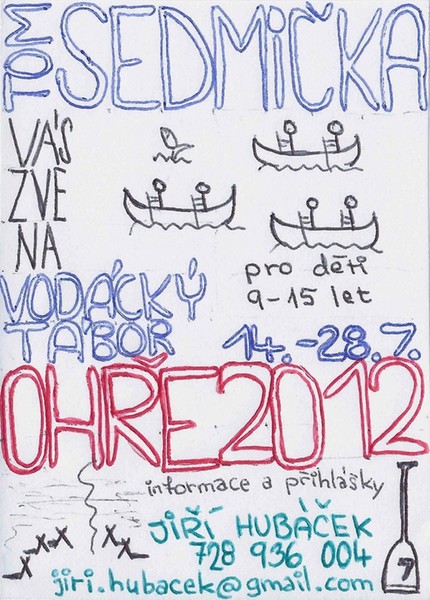 TOM SEDMIČKA
VÁS
ZVE
NA
pro děti
9-15 let
VODÁCKÝ
TÁBOR 14.-28.7.
OHŘE 2012
informace a přihlášky
JIŘÍ HUBÁČEK
728 936 004
jiri.hubacek@gmail.com
7